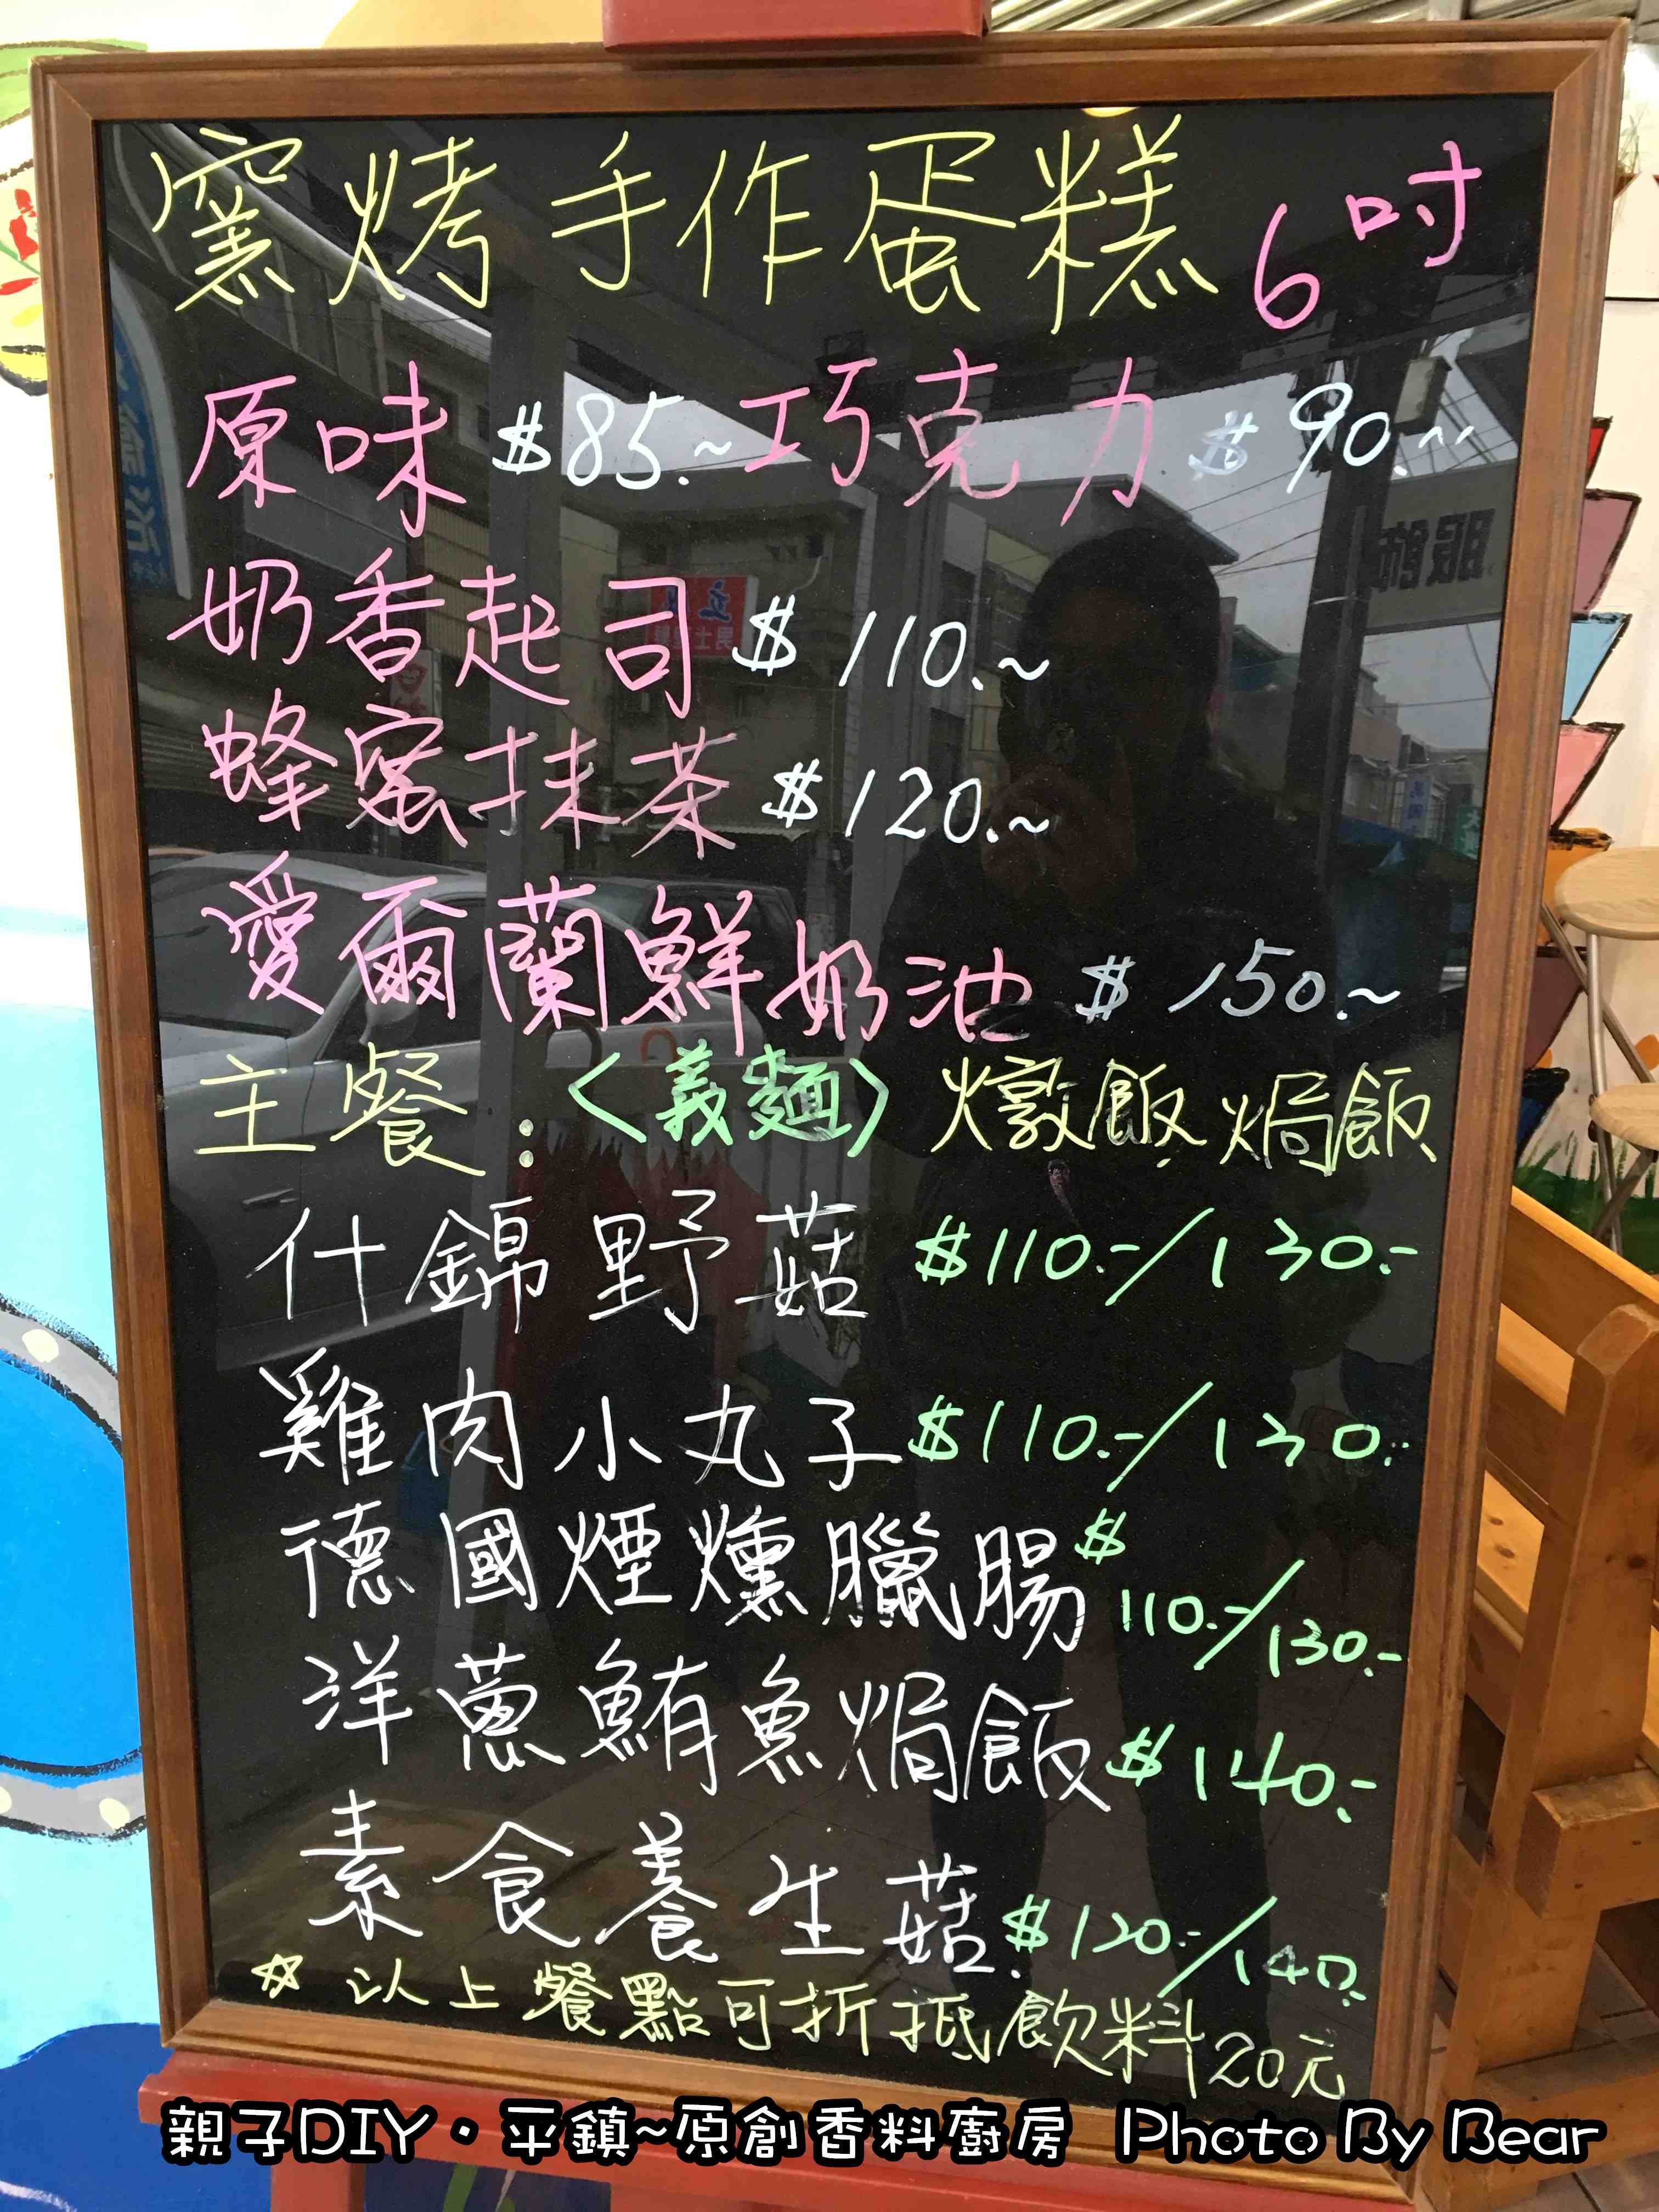 窯烤手作蛋糕 6吋
原味 $85.~ 巧克力 $90.~
奶香起司 $110.~
蜂蜜抹茶 $120.~
愛爾蘭鮮奶油 $150.~
主餐：〈義麵〉燉飯 焗飯
什錦野菇 $110.-/130.-
雞肉小丸子 $110.-/130.-
德國煙燻臘腸 $110.-/130.-
洋蔥鮪魚焗飯 $140.-
素食養生菇 $120.-/140.-
☆ 以上餐點可折抵飲料20元
親子DIY・平鎮~原創香料廚房 Photo By Bear
服飾